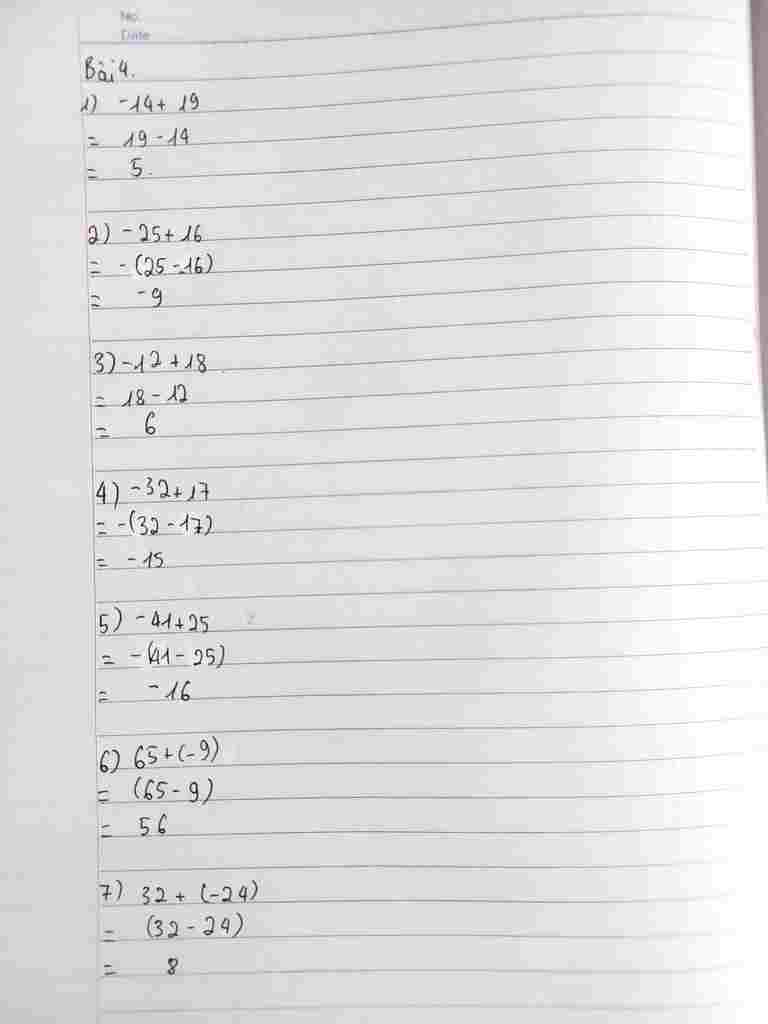 No.
Date
Bài 4.
1) -14 + 19
= 19 - 14
= 5.
2) -25 + 16
= -(25 - 16)
= -9
3) -12 + 18
= 18 - 12
= 6
4) -32 + 17
= -(32 - 17)
= -15
5) -41 + 25
= -(41 - 25)
= -16
6) 65 + (-9)
= (65 - 9)
= 56
7) 32 + (-24)
= (32 - 24)
= 8